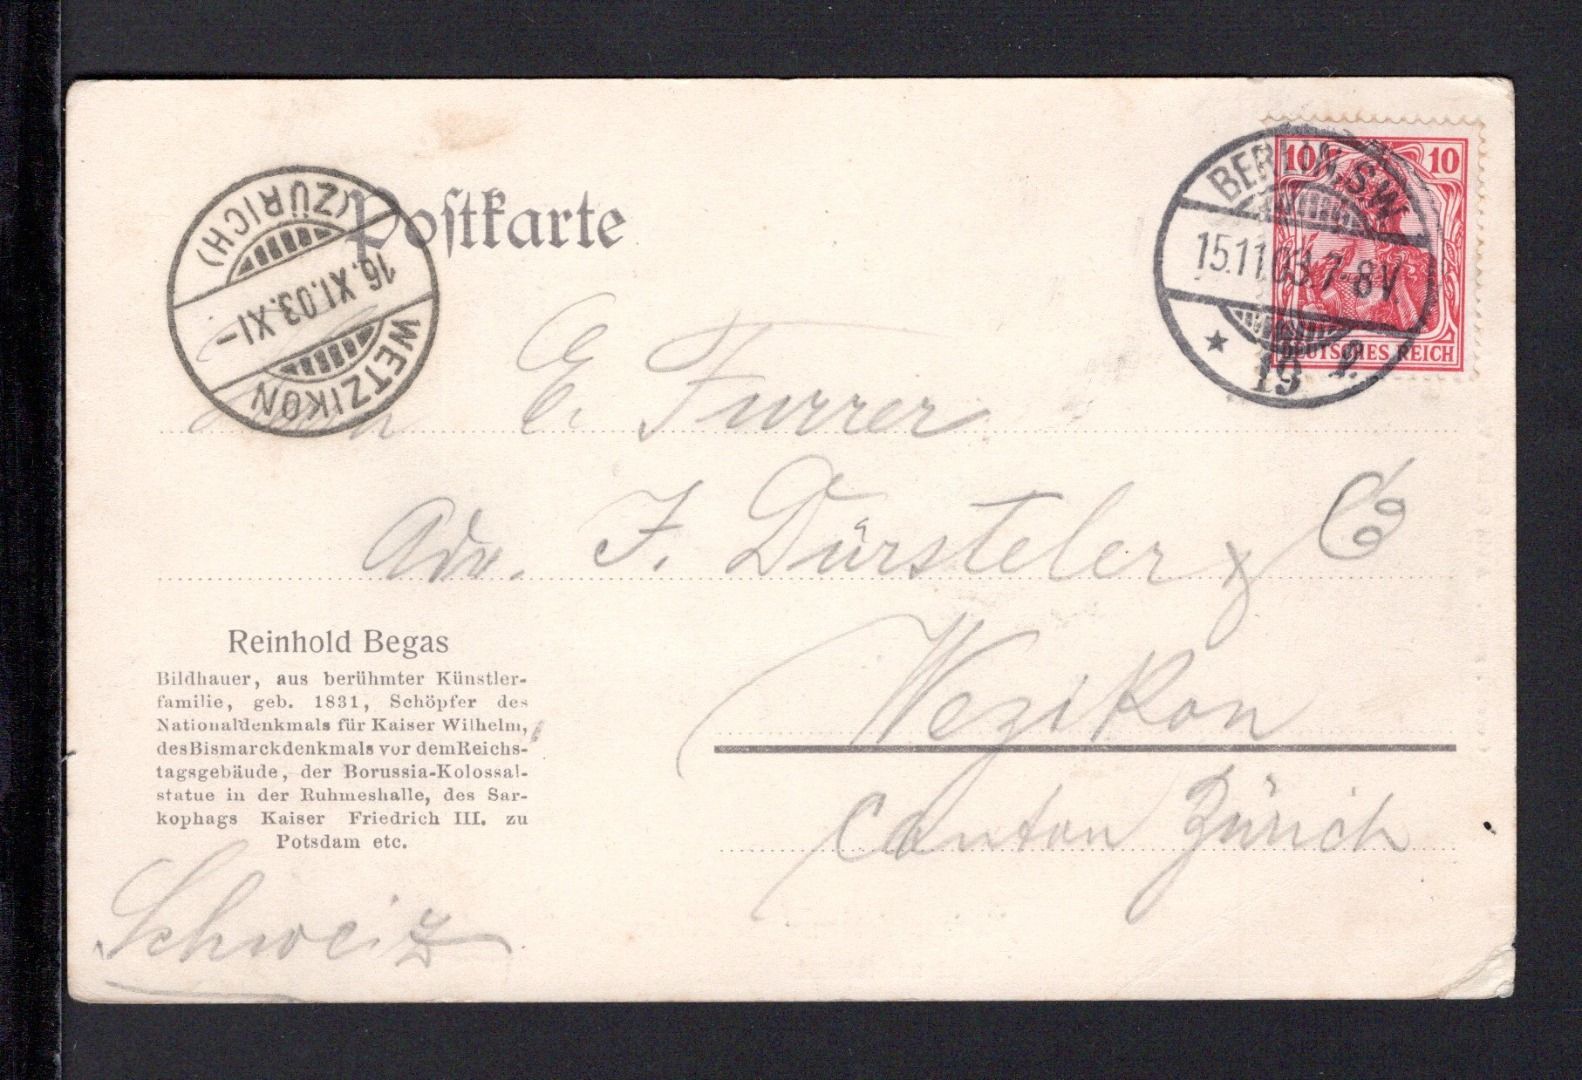 Postkarte
(ZÜRICH)
16.XI.03.XI-
WETZIKON
BERLIN, S.W.
15.11.03.7-8V.
* 19
10 10
DEUTSCHES REICH
E. Furrer
Adr. J. Dürsteler & C
Wezikon
Canton Zürich
Schweiz
Reinhold Begas
Bildhauer, aus berühmter Künstler-
familie, geb. 1831, Schöpfer des
Nationaldenkmals für Kaiser Wilhelm,
des Bismarckdenkmals vor dem Reichs-
tagsgebäude, der Borussia-Kolossal-
statue in der Ruhmeshalle, des Sar-
kophags Kaiser Friedrich III. zu
Potsdam etc.